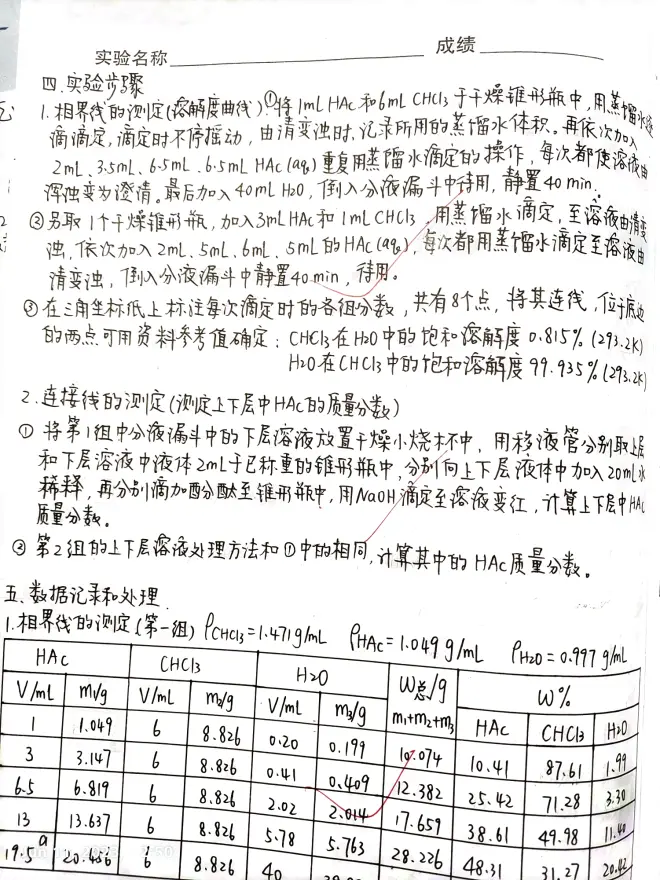 实验名称 成绩
四.实验步骤
1.相界线的测定(溶解度曲线):①将1mL HAc和6mL CHCl3于干燥锥形瓶中,用蒸馏水逐
滴滴定,滴定时不停摇动,由清变浊时,记录所用的蒸馏水体积。再依次加入
2mL、3.5mL、6.5mL、6.5mL HAc(aq)重复用蒸馏水滴定的操作,每次都使溶液由
浑浊变为澄清。最后加入40mL H2O,倒入分液漏斗中待用,静置40min.
②另取1个干燥锥形瓶,加入3mL HAc和1mL CHCl3,用蒸馏水滴定,至溶液由清变
浊,依次加入2mL、5mL、6mL、5mL的HAc(aq),每次都用蒸馏水滴定至溶液由
清变浊,倒入分液漏斗中静置40min,待用。
③在三角坐标纸上标注每次滴定时的各组分数,共有8个点,将其连线,位于底边
的两点可用资料参考值确定:CHCl3在H2O中的饱和溶解度 0.815%(293.2K)
H2O在CHCl3中的饱和溶解度 99.935%(293.2K)
2.连接线的测定(测定上下层中HAc的质量分数)
① 将第1组中分液漏斗中的下层溶液放置干燥小烧杯中,用移液管分别取上层
和下层溶液中液体2mL于已称重的锥形瓶中,分别向上下层液体中加入20mL水
稀释,再分别滴加酚酞至锥形瓶中,用NaOH滴定至溶液变红,计算上下层中HAc
质量分数。
② 第2组的上下层溶液处理方法和①中的相同,计算其中的HAc质量分数。
五、数据记录和处理
1.相界线的测定(第一组) ρCHCl3=1.471g/mL ρHAc=1.049g/mL ρH2O=0.997g/mL
HAc CHCl3 H2O W总/g W%
V/mL m1/g V/mL m2/g V/mL m3/g m1+m2+m3 HAc CHCl3 H2O
1 1.049 6 8.826 0.20 0.199 10.074 10.41 87.61 1.99
3 3.147 6 8.826 0.41 0.409 12.382 25.42 71.28 3.30
6.5 6.819 6 8.826 2.02 2.014 17.659 38.61 49.98 11.40
13 13.637 6 8.826 5.78 5.763 28.226 48.31 31.27 20.42
19.5 20.456 6 8.826 40